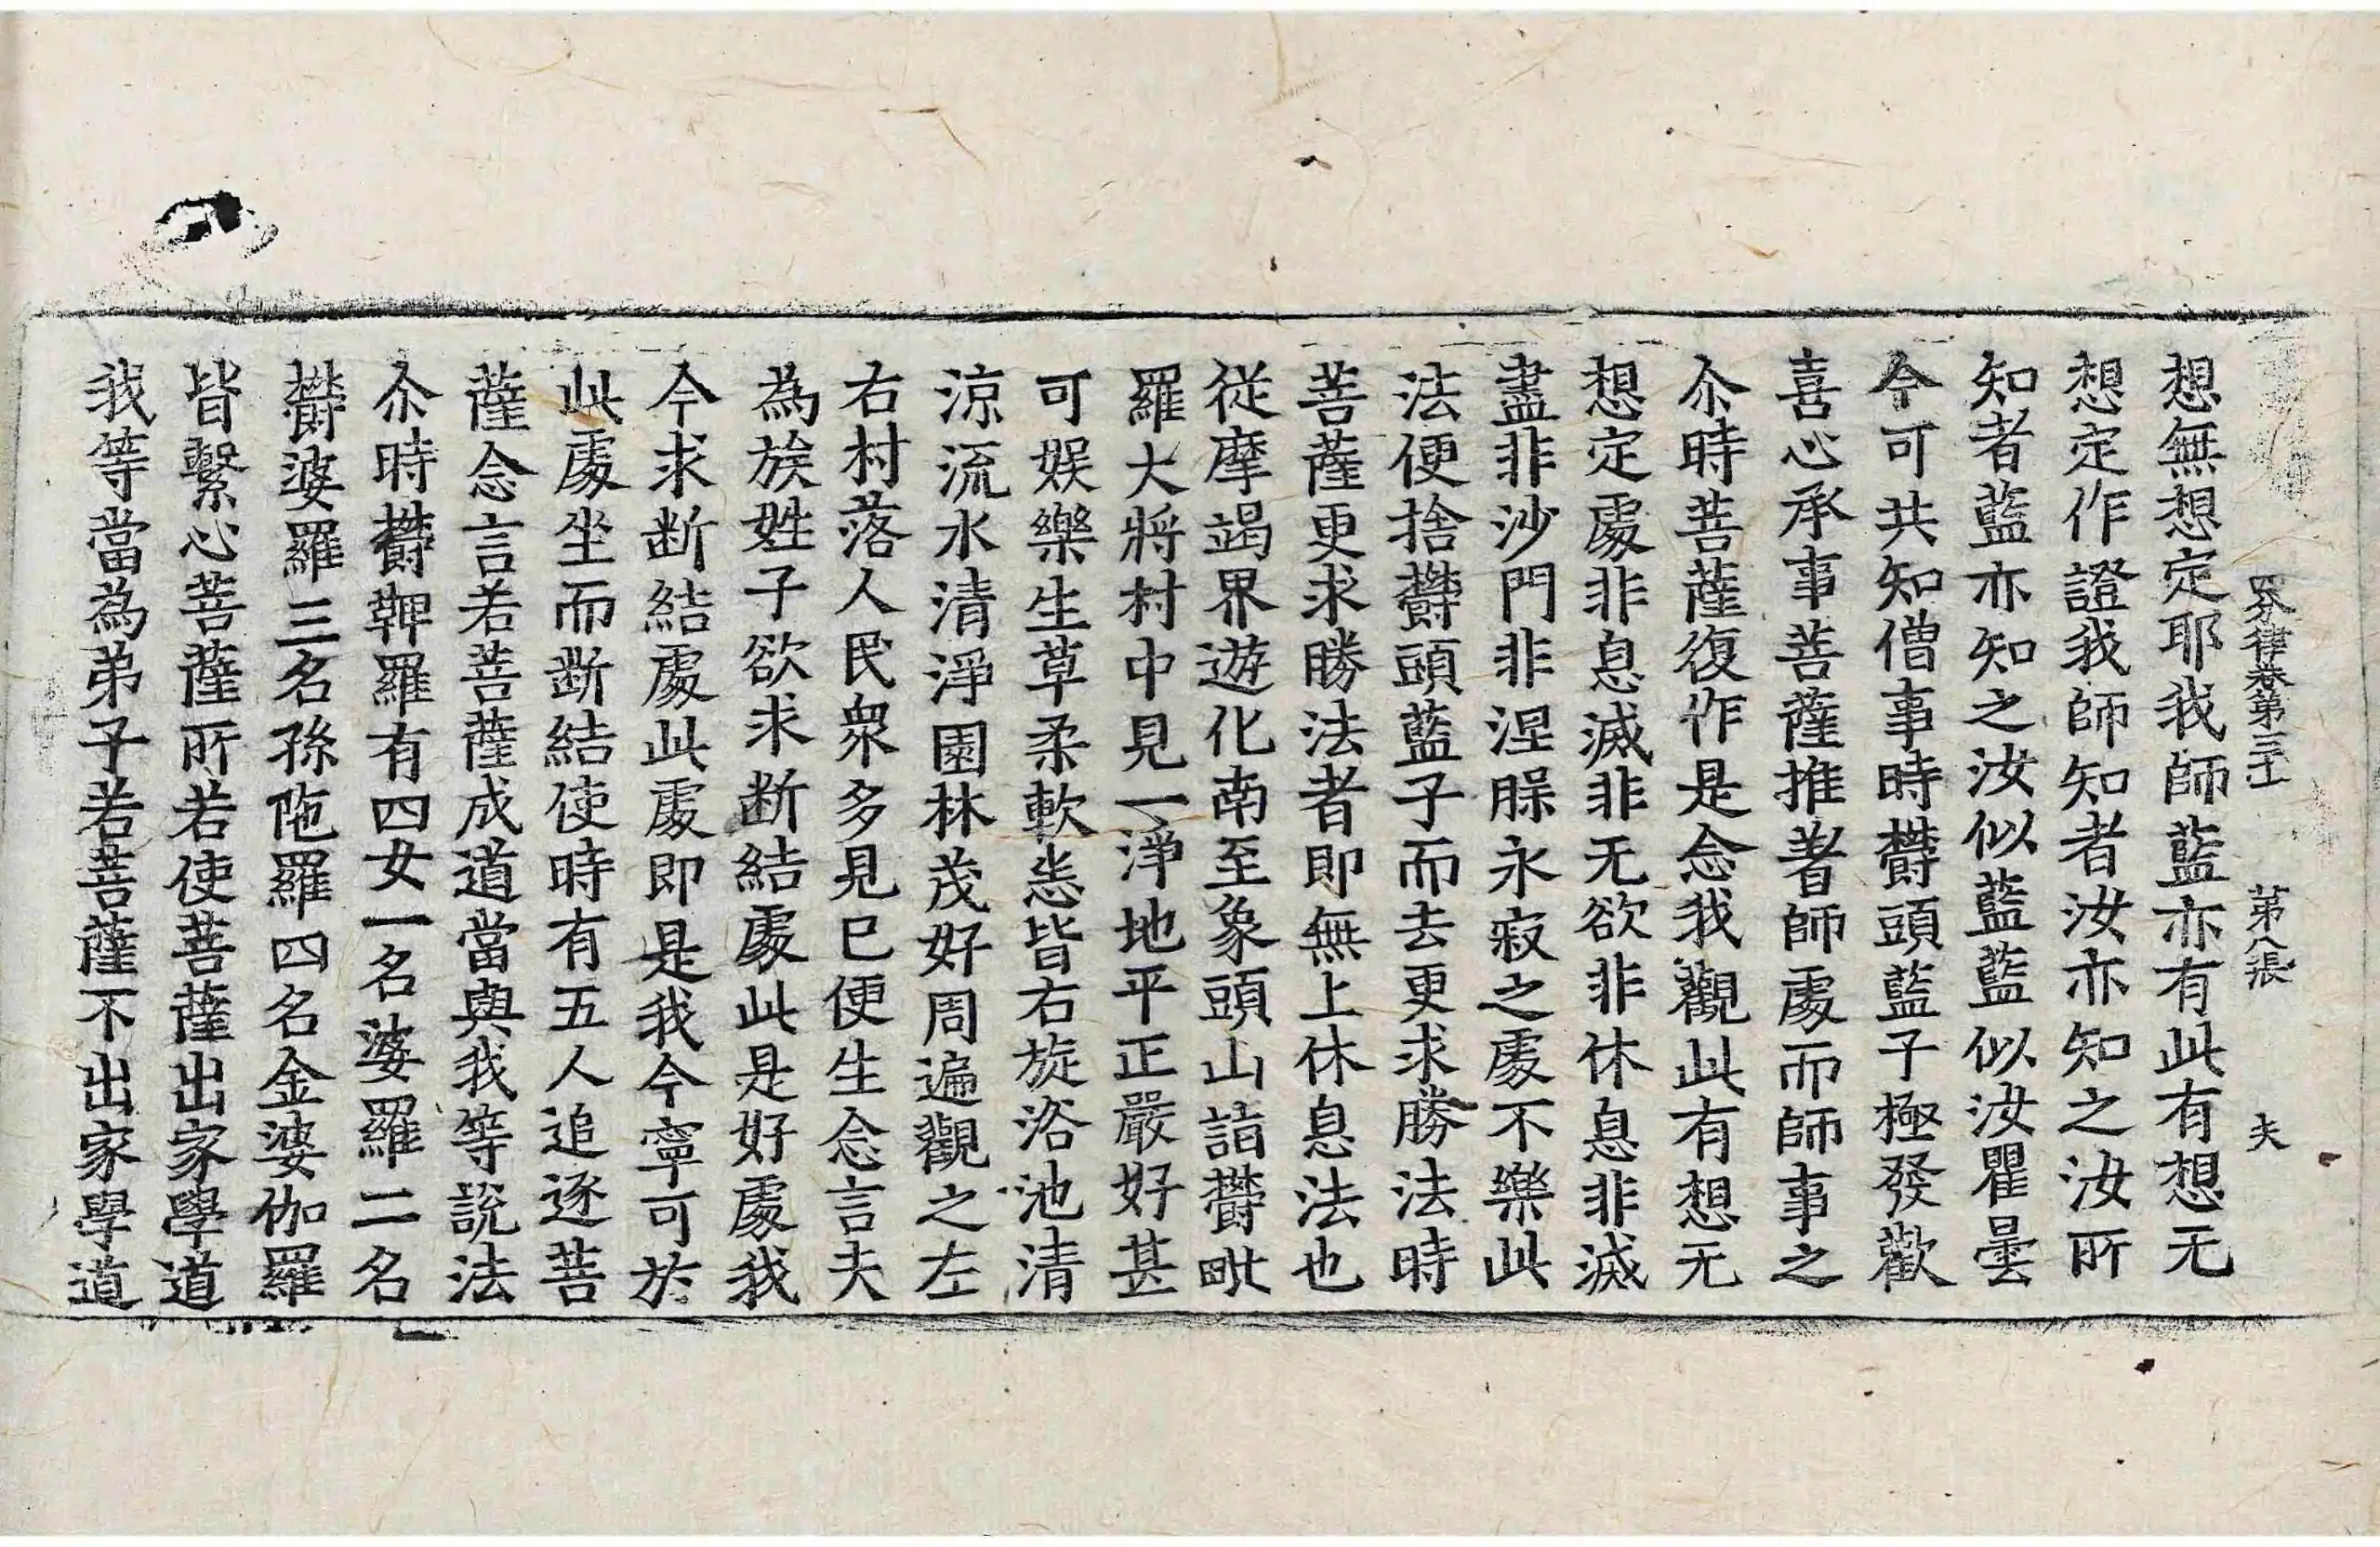 四分律卷第三十一 第八張 夫
想無想定耶我師藍亦有此有想无
想定作證我師知者汝亦知之汝所
知者藍亦知之汝似藍藍似汝瞿曇
今可共知僧事時欝頭藍子極發歡
喜心承事菩薩推著師處而師事之
尒時菩薩復作是念我觀此有想无
想定處非息滅非无欲非休息非滅
盡非沙門非涅槃永寂之處不樂此
法便捨欝頭藍子而去更求勝法時
菩薩更求勝法者即無上休息法也
従摩竭界遊化南至象頭山詣欝毗
羅大將村中見一淨地平正嚴好甚
可娛樂生草柔軟悉皆右旋浴池清
涼流水清淨園林茂好周遍觀之左
右村落人民衆多見已便生念言夫
為族姓子欲求断結處此是好處我
今求断結處此處即是我今寧可於
此處坐而断結使時有五人追逐菩
薩念言若菩薩成道當與我等說法
尒時欝鞞羅有四女一名婆羅二名
欝婆羅三名孫陁羅四名金婆伽羅
皆繫心菩薩所若使菩薩出家學道
我等當為弟子若菩薩不出家學道